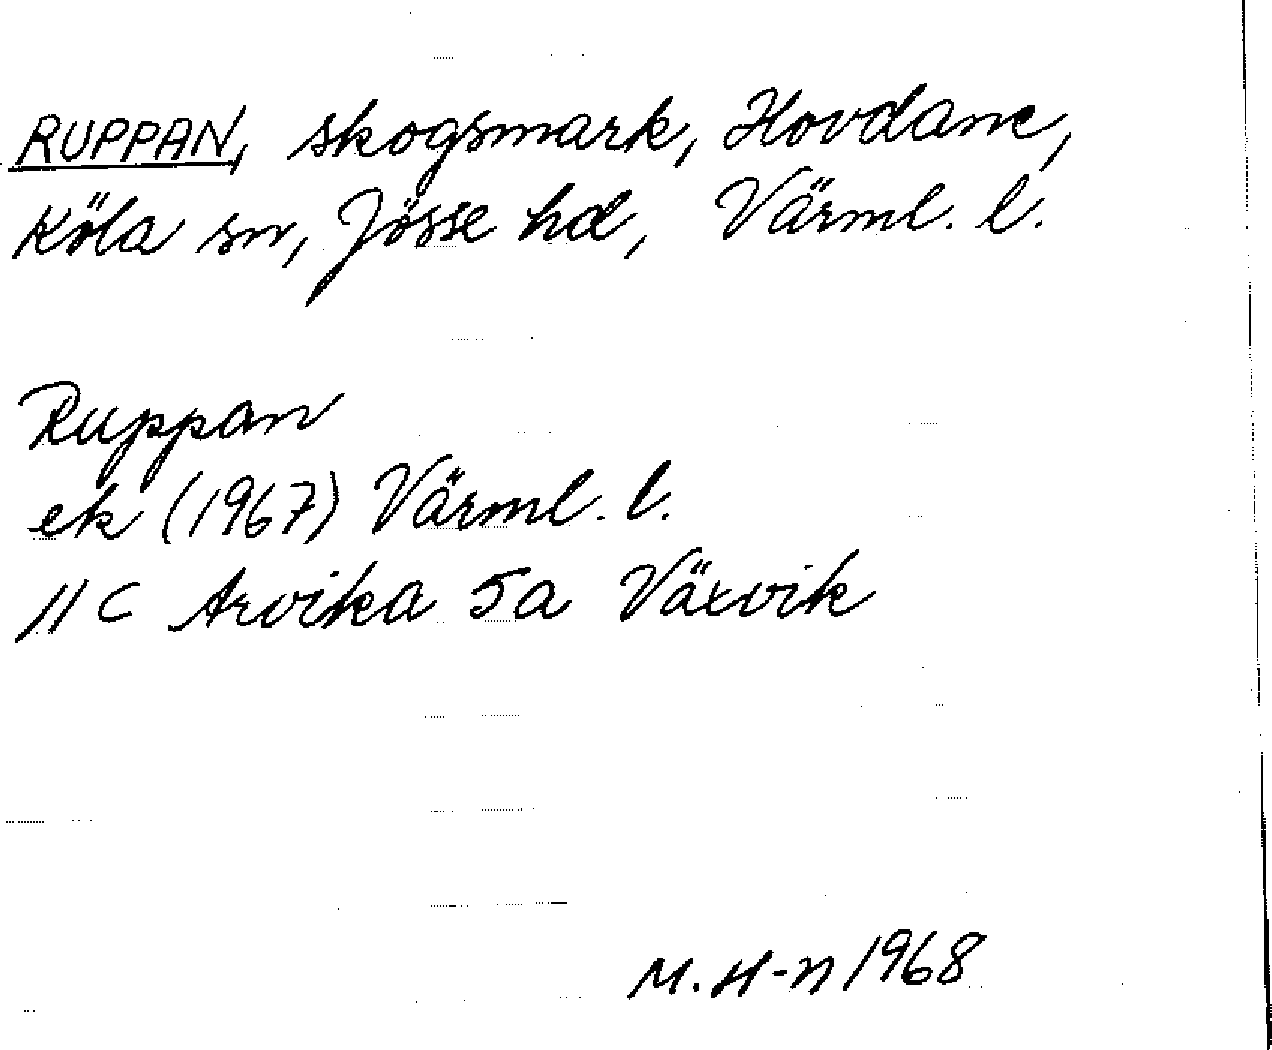 RUPPAN, skogsmark, Hovdane,
Köla sn, Jösse hd, Värml. l.
Ruppan
ek (1967) Värml. l.
11 C Arvika 5a Växvik
M. H-n 1968